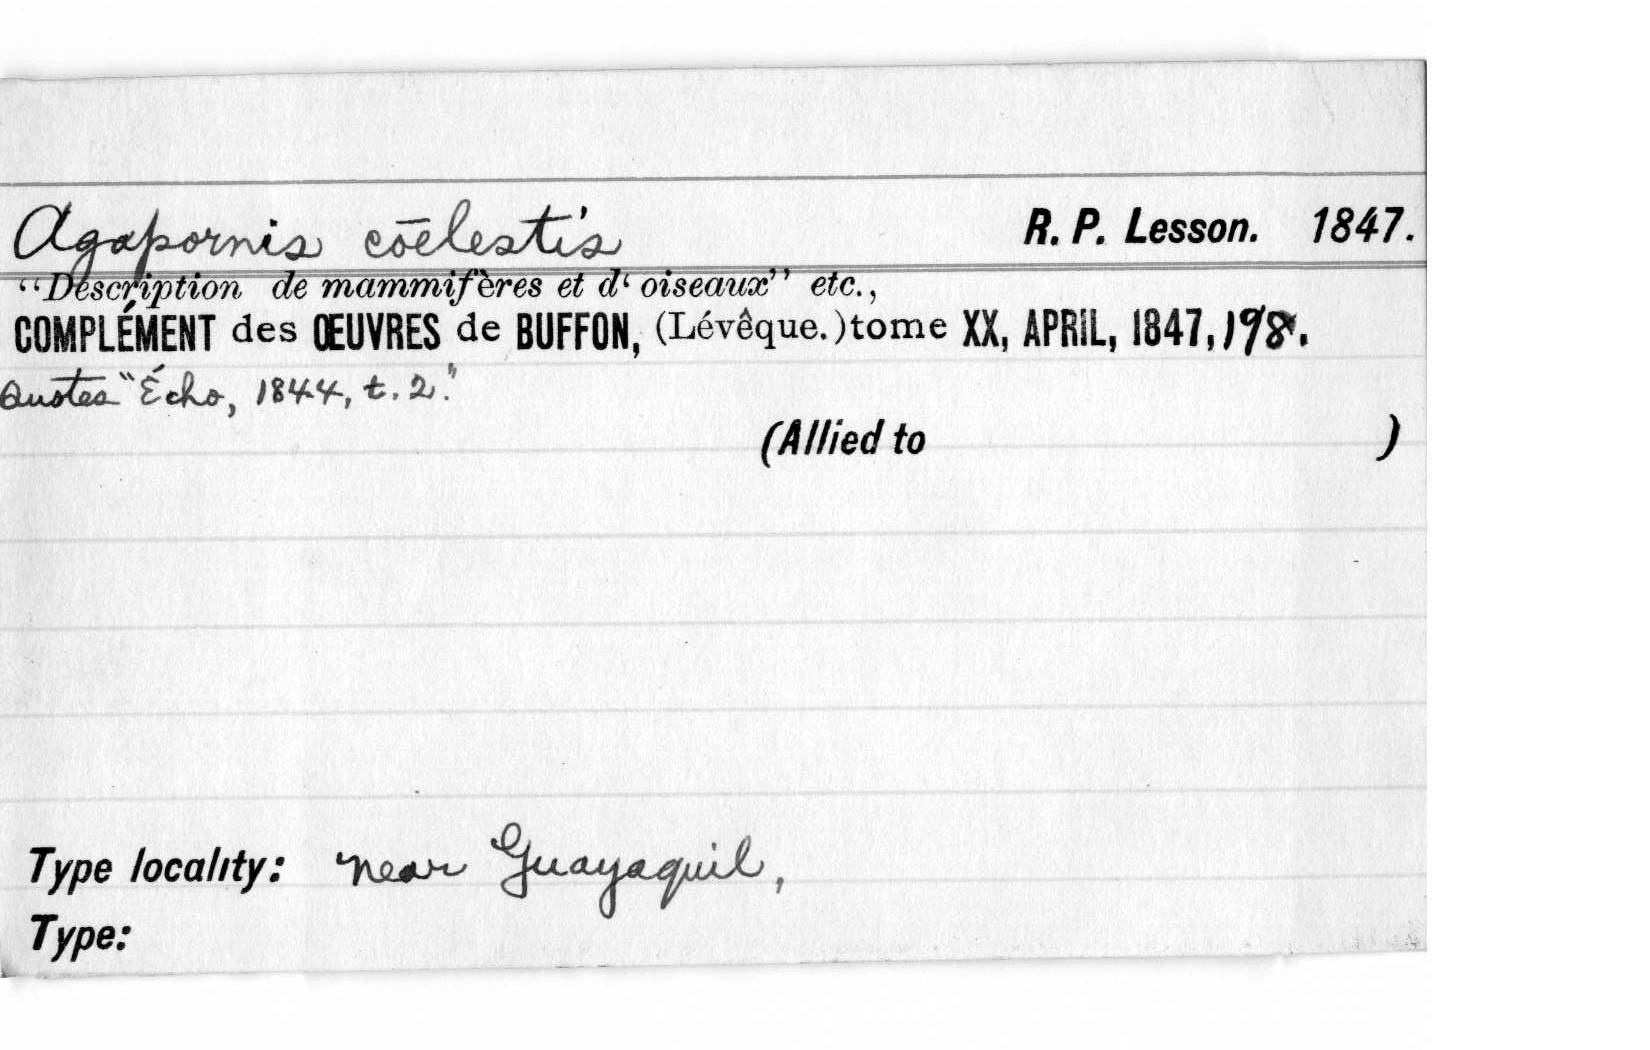 Agapornis cōelestis R. P. Lesson. 1847.
“Description de mammifères et d‘ oiseaux” etc.,
COMPLÉMENT des ŒUVRES de BUFFON, (Lévêque.) tome XX, APRIL, 1847, 198.
Quotes "Écho, 1844, t. 2."
(Allied to )
Type locality: near Guayaquil,
Type: